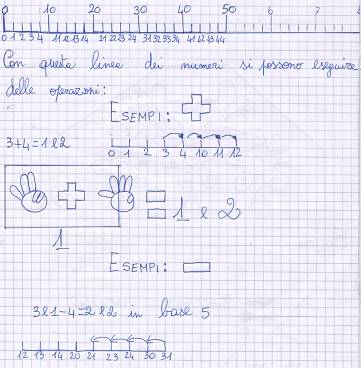 0 10 20 30 40 50 6 7
0 1 2 3 4 11 12 13 14 21 22 23 24 31 32 33 34 41 42 43 44
Con questa linea dei numeri si possono eseguire
delle operazioni:
ESEMPI: +
3+4=1 e 2
0 1 2 3 4 10 11 12
+ = 1 e 2
1
ESEMPI: -
3 e 1-4=2 e 2 in base 5
12 13 14 20 21 22 23 24 30 31